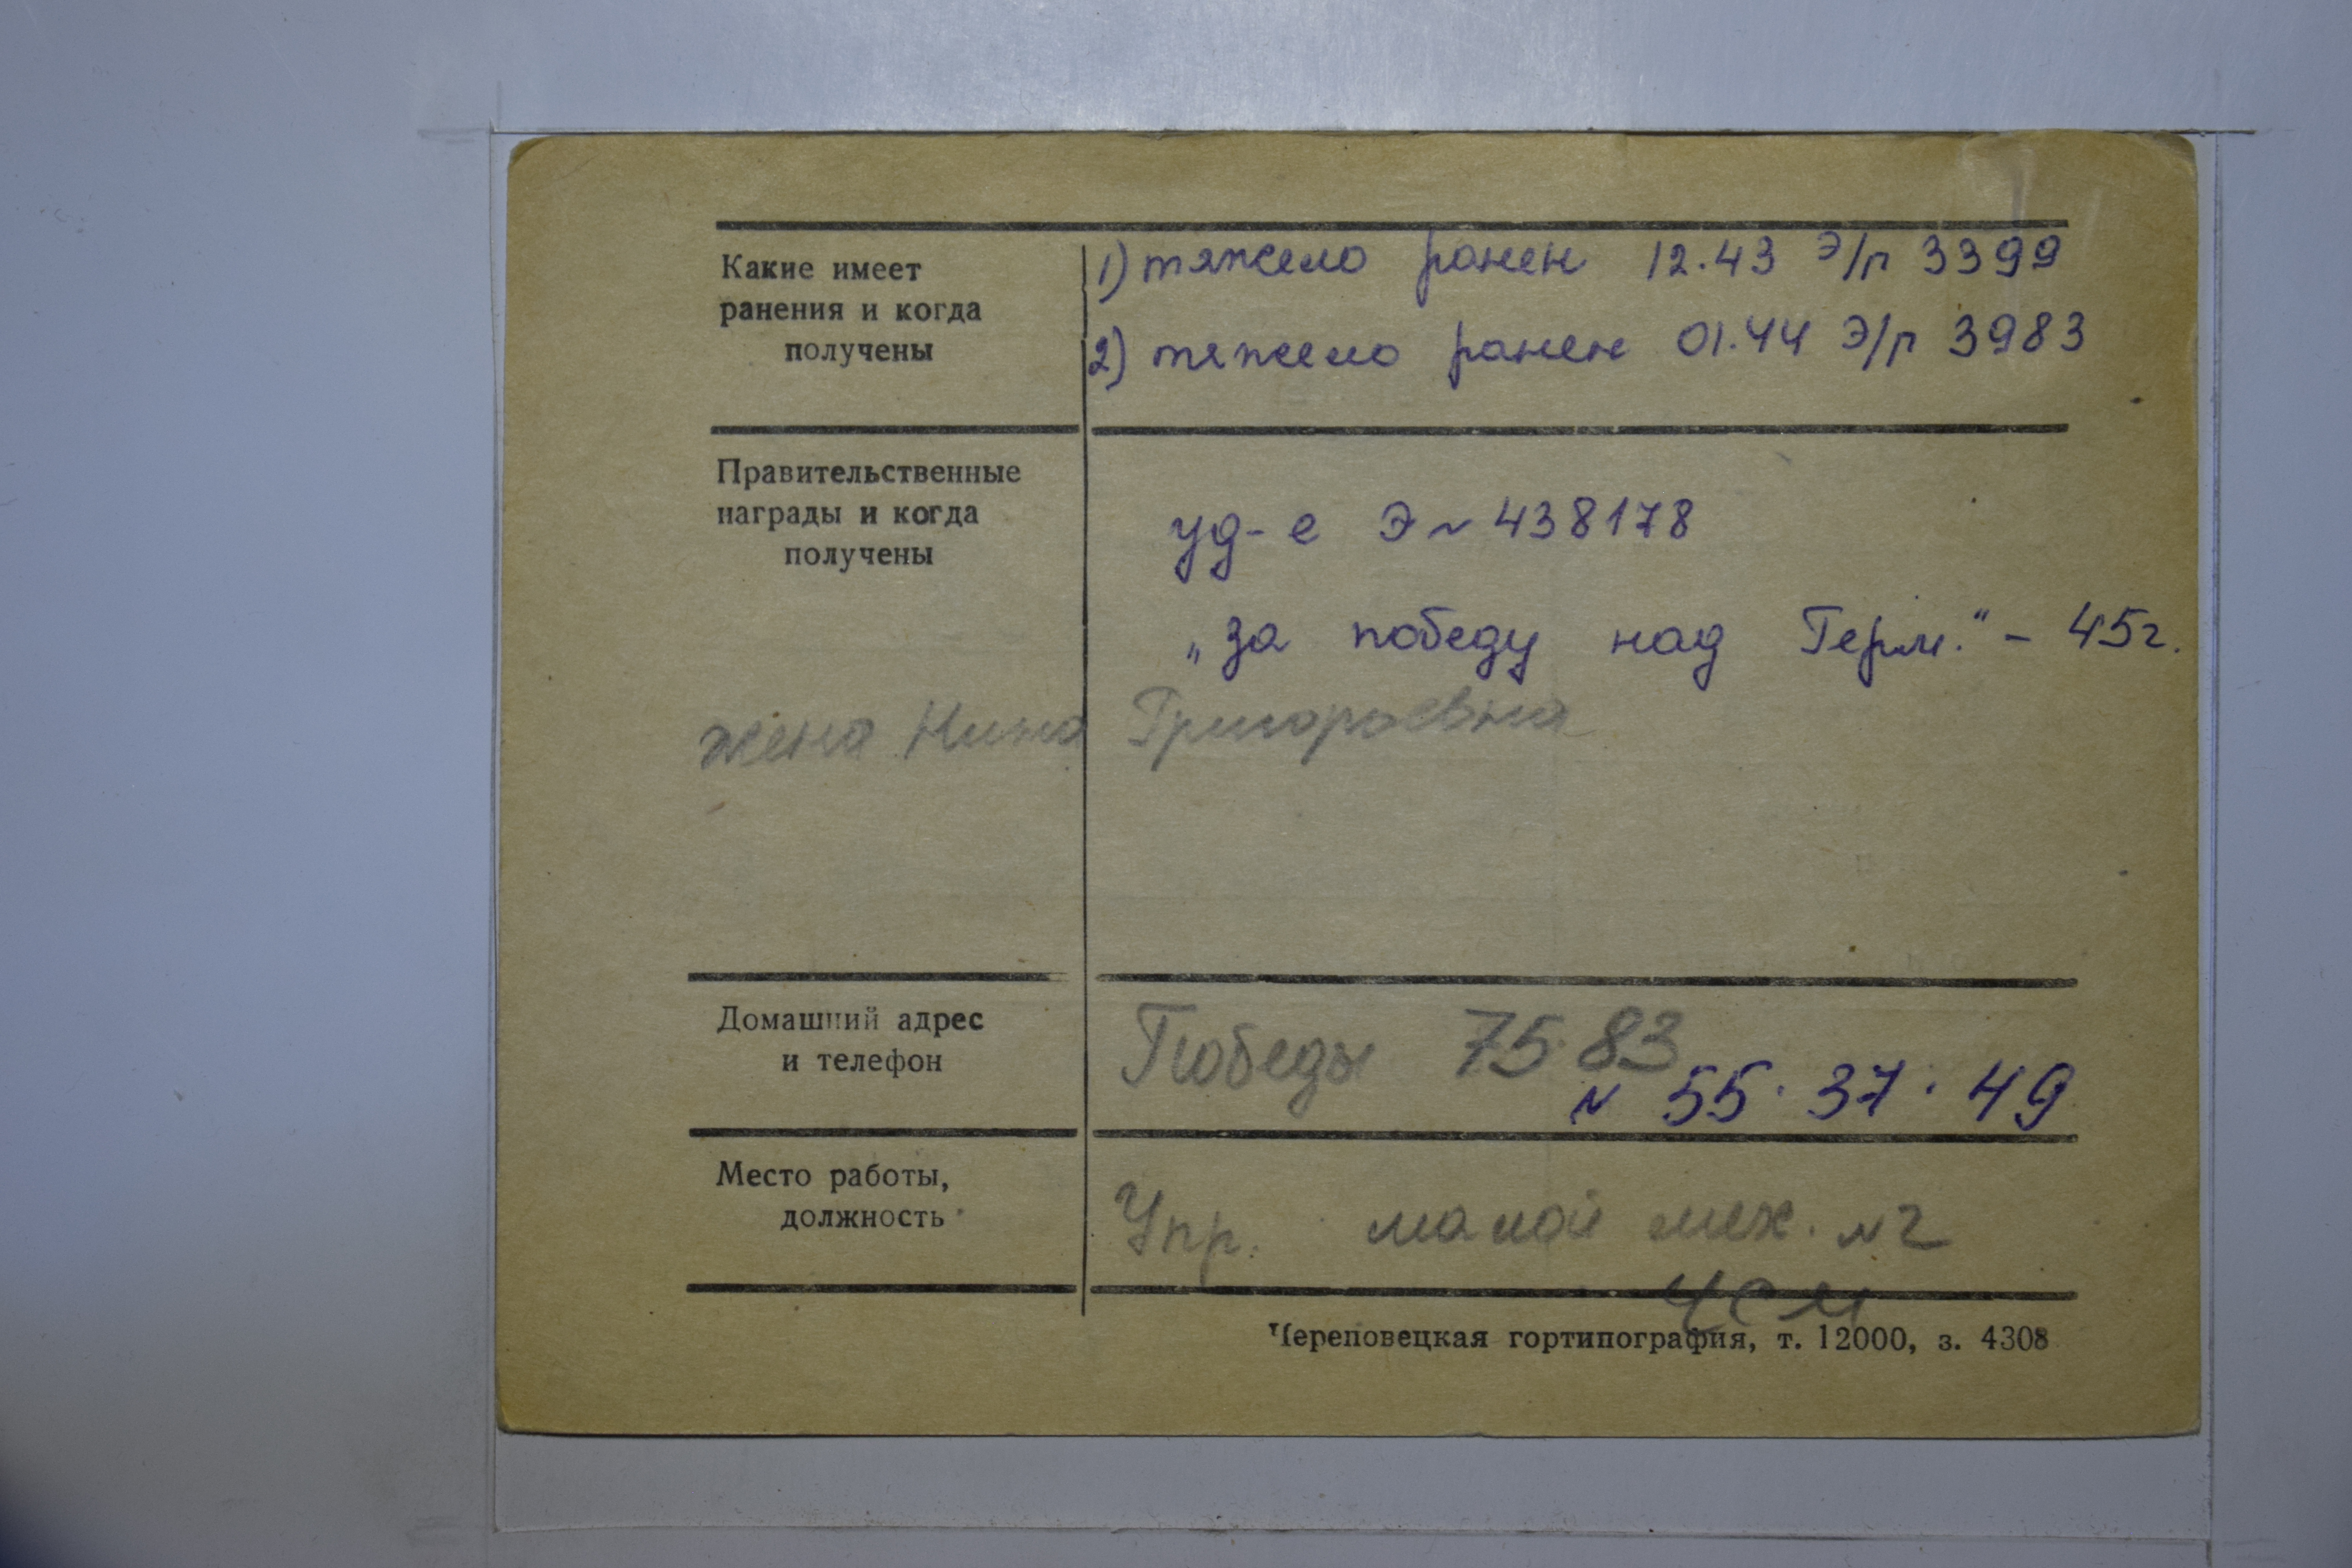 Какие имеет
ранения и когда
получены
1) тяжело ранен 12.43 Э/г 3399
2) тяжело ранен 01.44 Э/г 3983
Правительственные
награды и когда
получены
уд-е Э № 438178
„за победу над Герм." - 45г.
жена Нина Григорьевна
Домашний адрес
и телефон
Победы 75·83
№ 55·37·49
Место работы,
должность
Упр. малой мех. №2
ЧСМ
Череповецкая гортипография, т. 12000, з. 4308